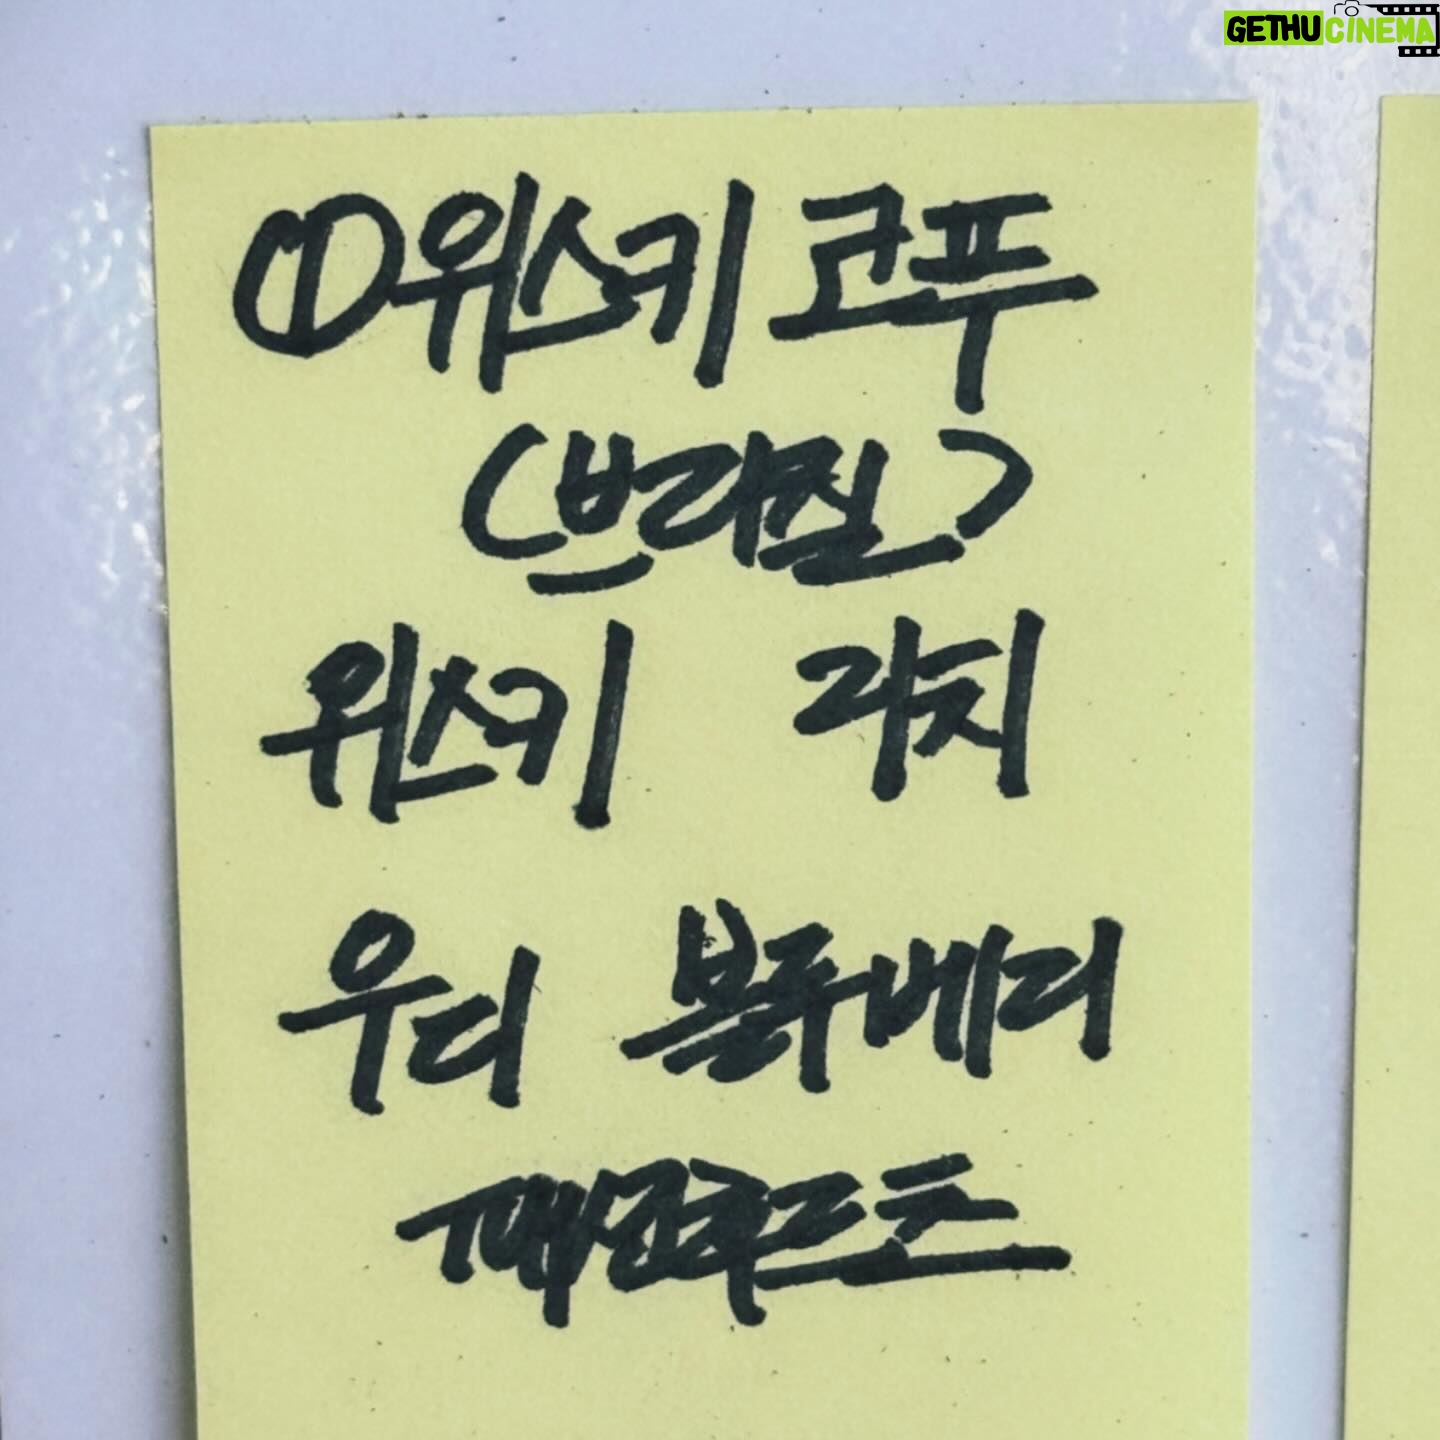 GETHUCINEMA
①위스키 코푸
(브라질)
위스키 리치
우디 블루베리